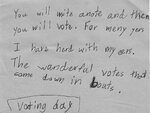 You will write a note and then
you will vote. For meny yers
I have herd with my ears.
The wanderful votes that
come down in boats.
Voting day